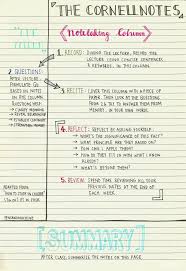 THE CORNELL NOTES
Notetaking Column
1. RECORD: DURING THE LECTURE, RECORD THE
LECTURE USING CONCISE SENTENCES
& KEYWORDS, IN THIS COLUMN
2. QUESTIONS:
AFTER LECTURE,
FORMULATE Qs
BASED ON NOTES
IN THIS COLUMN.
QUESTIONS HELP:
→ CLARIFY MEANING
→ REVEAL RELATIONSHIP
→ ESTABLISH CONTINUITY
→ STRENGTHEN
MEMORY
3. RECITE: COVER THIS COLUMN WITH A PIECE OF
PAPER. THEN LOOK AT THE QUESTIONS FROM
2 & TRY TO ANSWER THEM
FROM MEMORY, IN YOUR OWN WORDS.
4. REFLECT: REFLECT BY ASKING YOURSELF:
→ WHAT'S THE SIGNIFICANCE OF THIS FACT?
→ HOW CAN I APPLY THEM?
→ HOW DO THEY FIT IN WITH WHAT I KNOW
ALREADY?
→ WHAT'S BEYOND THEM?
5. REVIEW: SPEND TIME REVIEWING ALL YOUR
PREVIOUS NOTES AT THE END OF
EACH WEEK.
ADAPTED FROM
"HOW TO STUDY IN COLLEGE"
[SUMMARY]
AFTER CLASS, SUMMARIZE THE NOTES ON THIS PAGE.